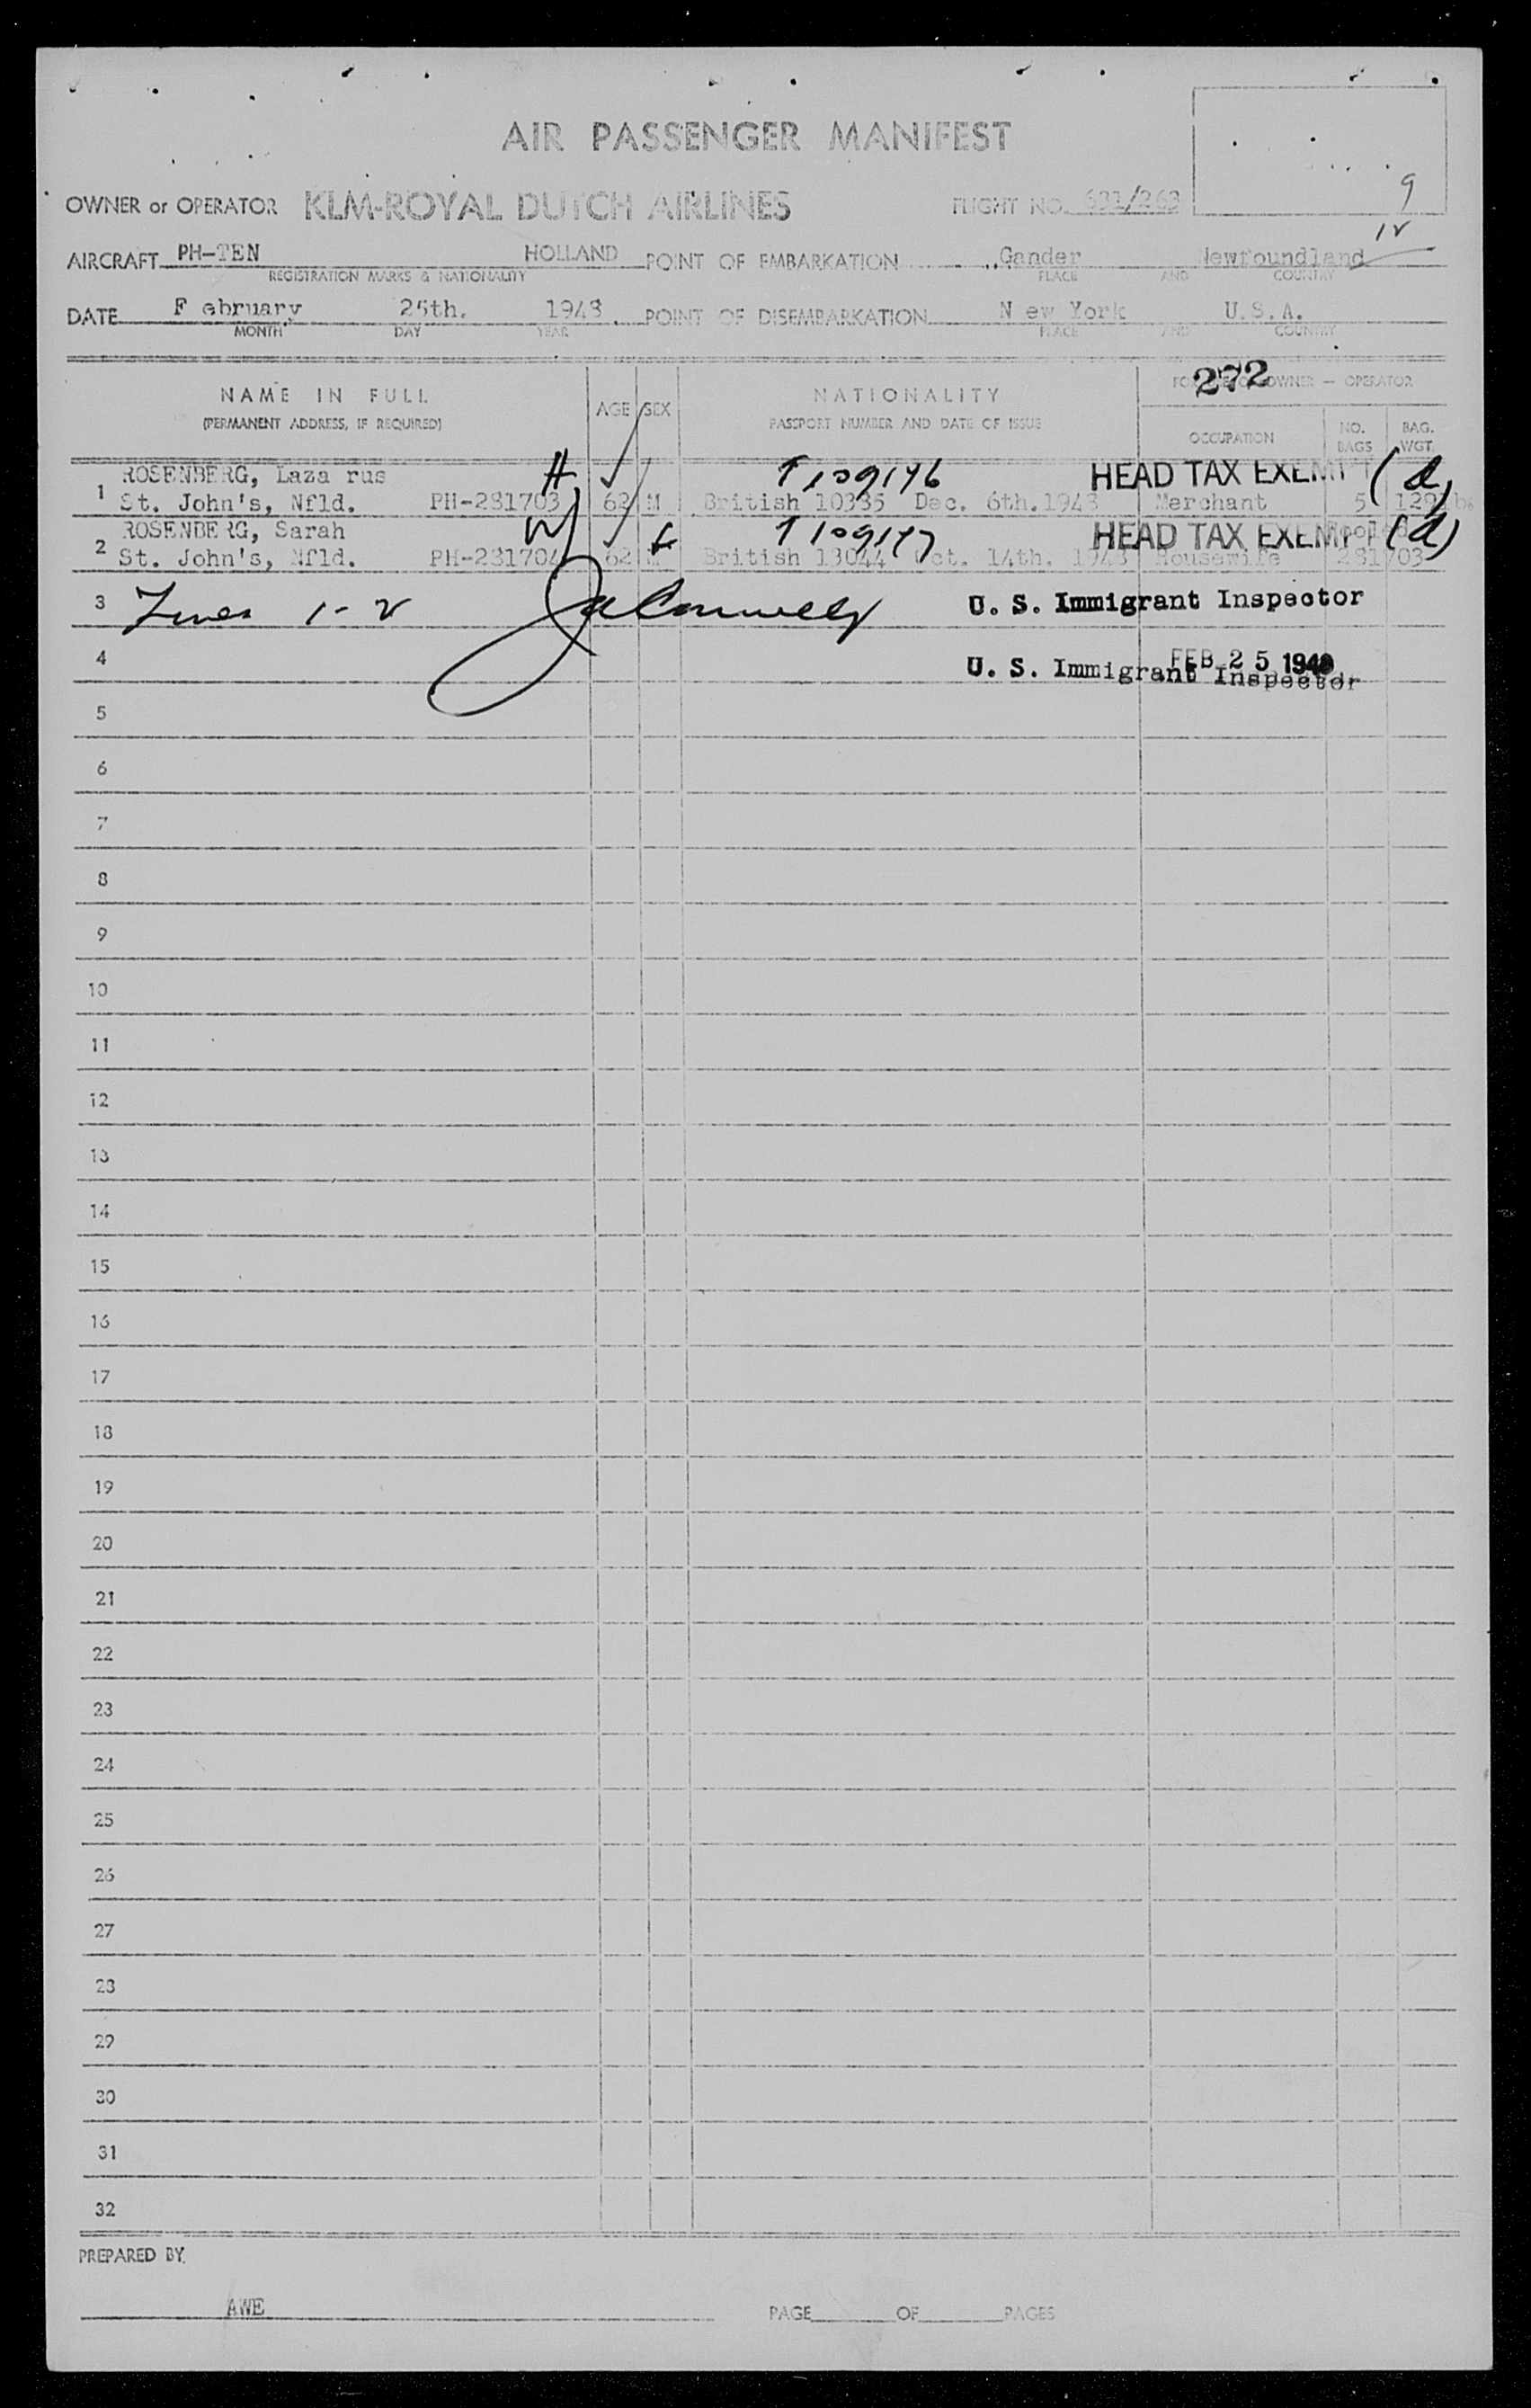 AIR PASSENGER MANIFEST
9
OWNER or OPERATOR KLM-ROYAL DUTCH AIRLINES FLIGHT NO. 631/263
AIRCRAFT PH-TEN HOLLAND POINT OF EMBARKATION Gander Newfoundland
REGISTRATION MARKS & NATIONALITY PLACE AND COUNTRY
DATE F ebruary 25th. 1948 POINT OF DISEMBARKATION N ew York U.S.A.
MONTH DAY YEAR PLACE AND COUNTRY
272
NAME IN FULL AGE SEX NATIONALITY OWNER — OPERATOR
(PERMANENT ADDRESS, IF REQUIRED) PASSPORT NUMBER AND DATE OF ISSUE OCCUPATION NO. BAGS BAG. WGT.
ROSENBERG, Laza rus H T109176 HEAD TAX EXEMPT (d)
1 St. John's, Nfld. PH-281703 62 M British 10335 Dec. 6th.1948 Merchant 5
ROSENBERG, Sarah W F T109177 HEAD TAX EXEMPT (d)
2 St. John's, Nfld. PH-281704 62 British 13044 Oct. 14th. 1948 Housewife 281703
3 Lines 1-2 U. S. Immigrant Inspector
4 FEB 25 1948
U. S. Immigrant Inspector
5
6
7
8
9
10
11
12
13
14
15
16
17
18
19
20
21
22
23
24
25
26
27
28
29
30
31
32
PREPARED BY
AWE PAGE OF PAGES